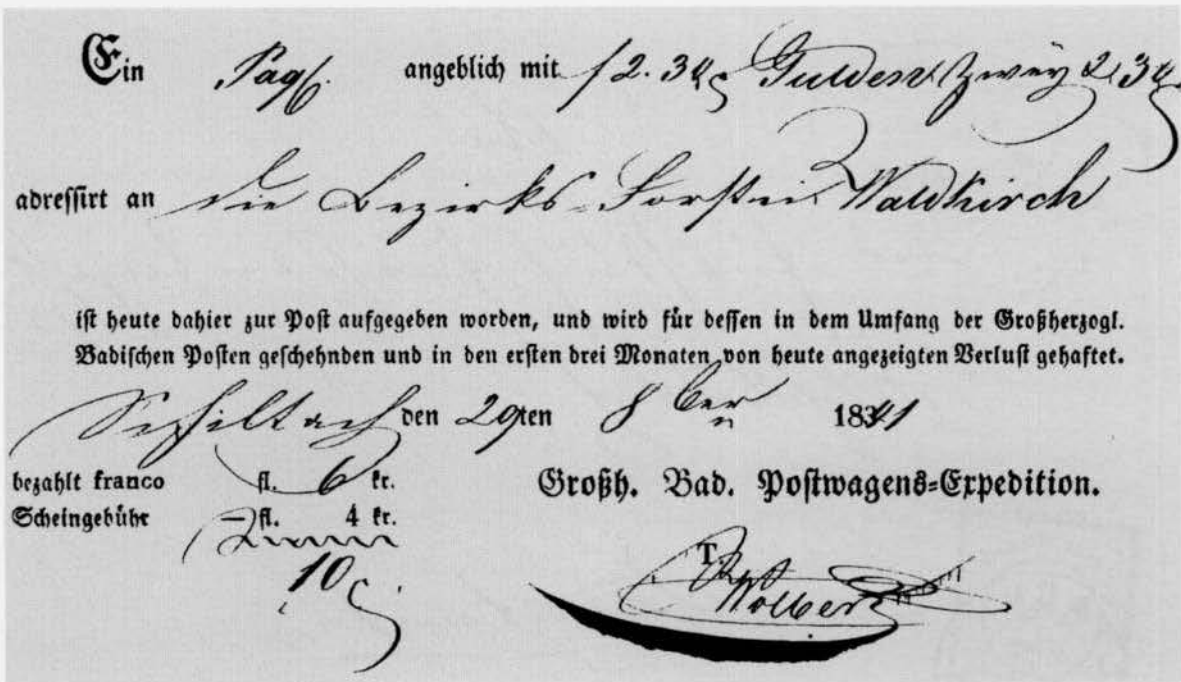 Ein Paq. angeblich mit f 2. 34 Gulden Zwey & 34
adressirt an die Bezirks-Forstei Waldkirch
ist heute dahier zur Post aufgegeben worden, und wird für dessen in dem Umfang der Großherzogl.
Badischen Posten geschehnden und in den ersten drei Monaten von heute angezeigten Verlust gehaftet.
Schiltach den 29ten 8ber 1841
bezahlt franco fl. 6 kr.
Scheingebühr — fl. 4 kr.
10
Großh. Bad. Postwagens-Expedition.
T.
Wolber